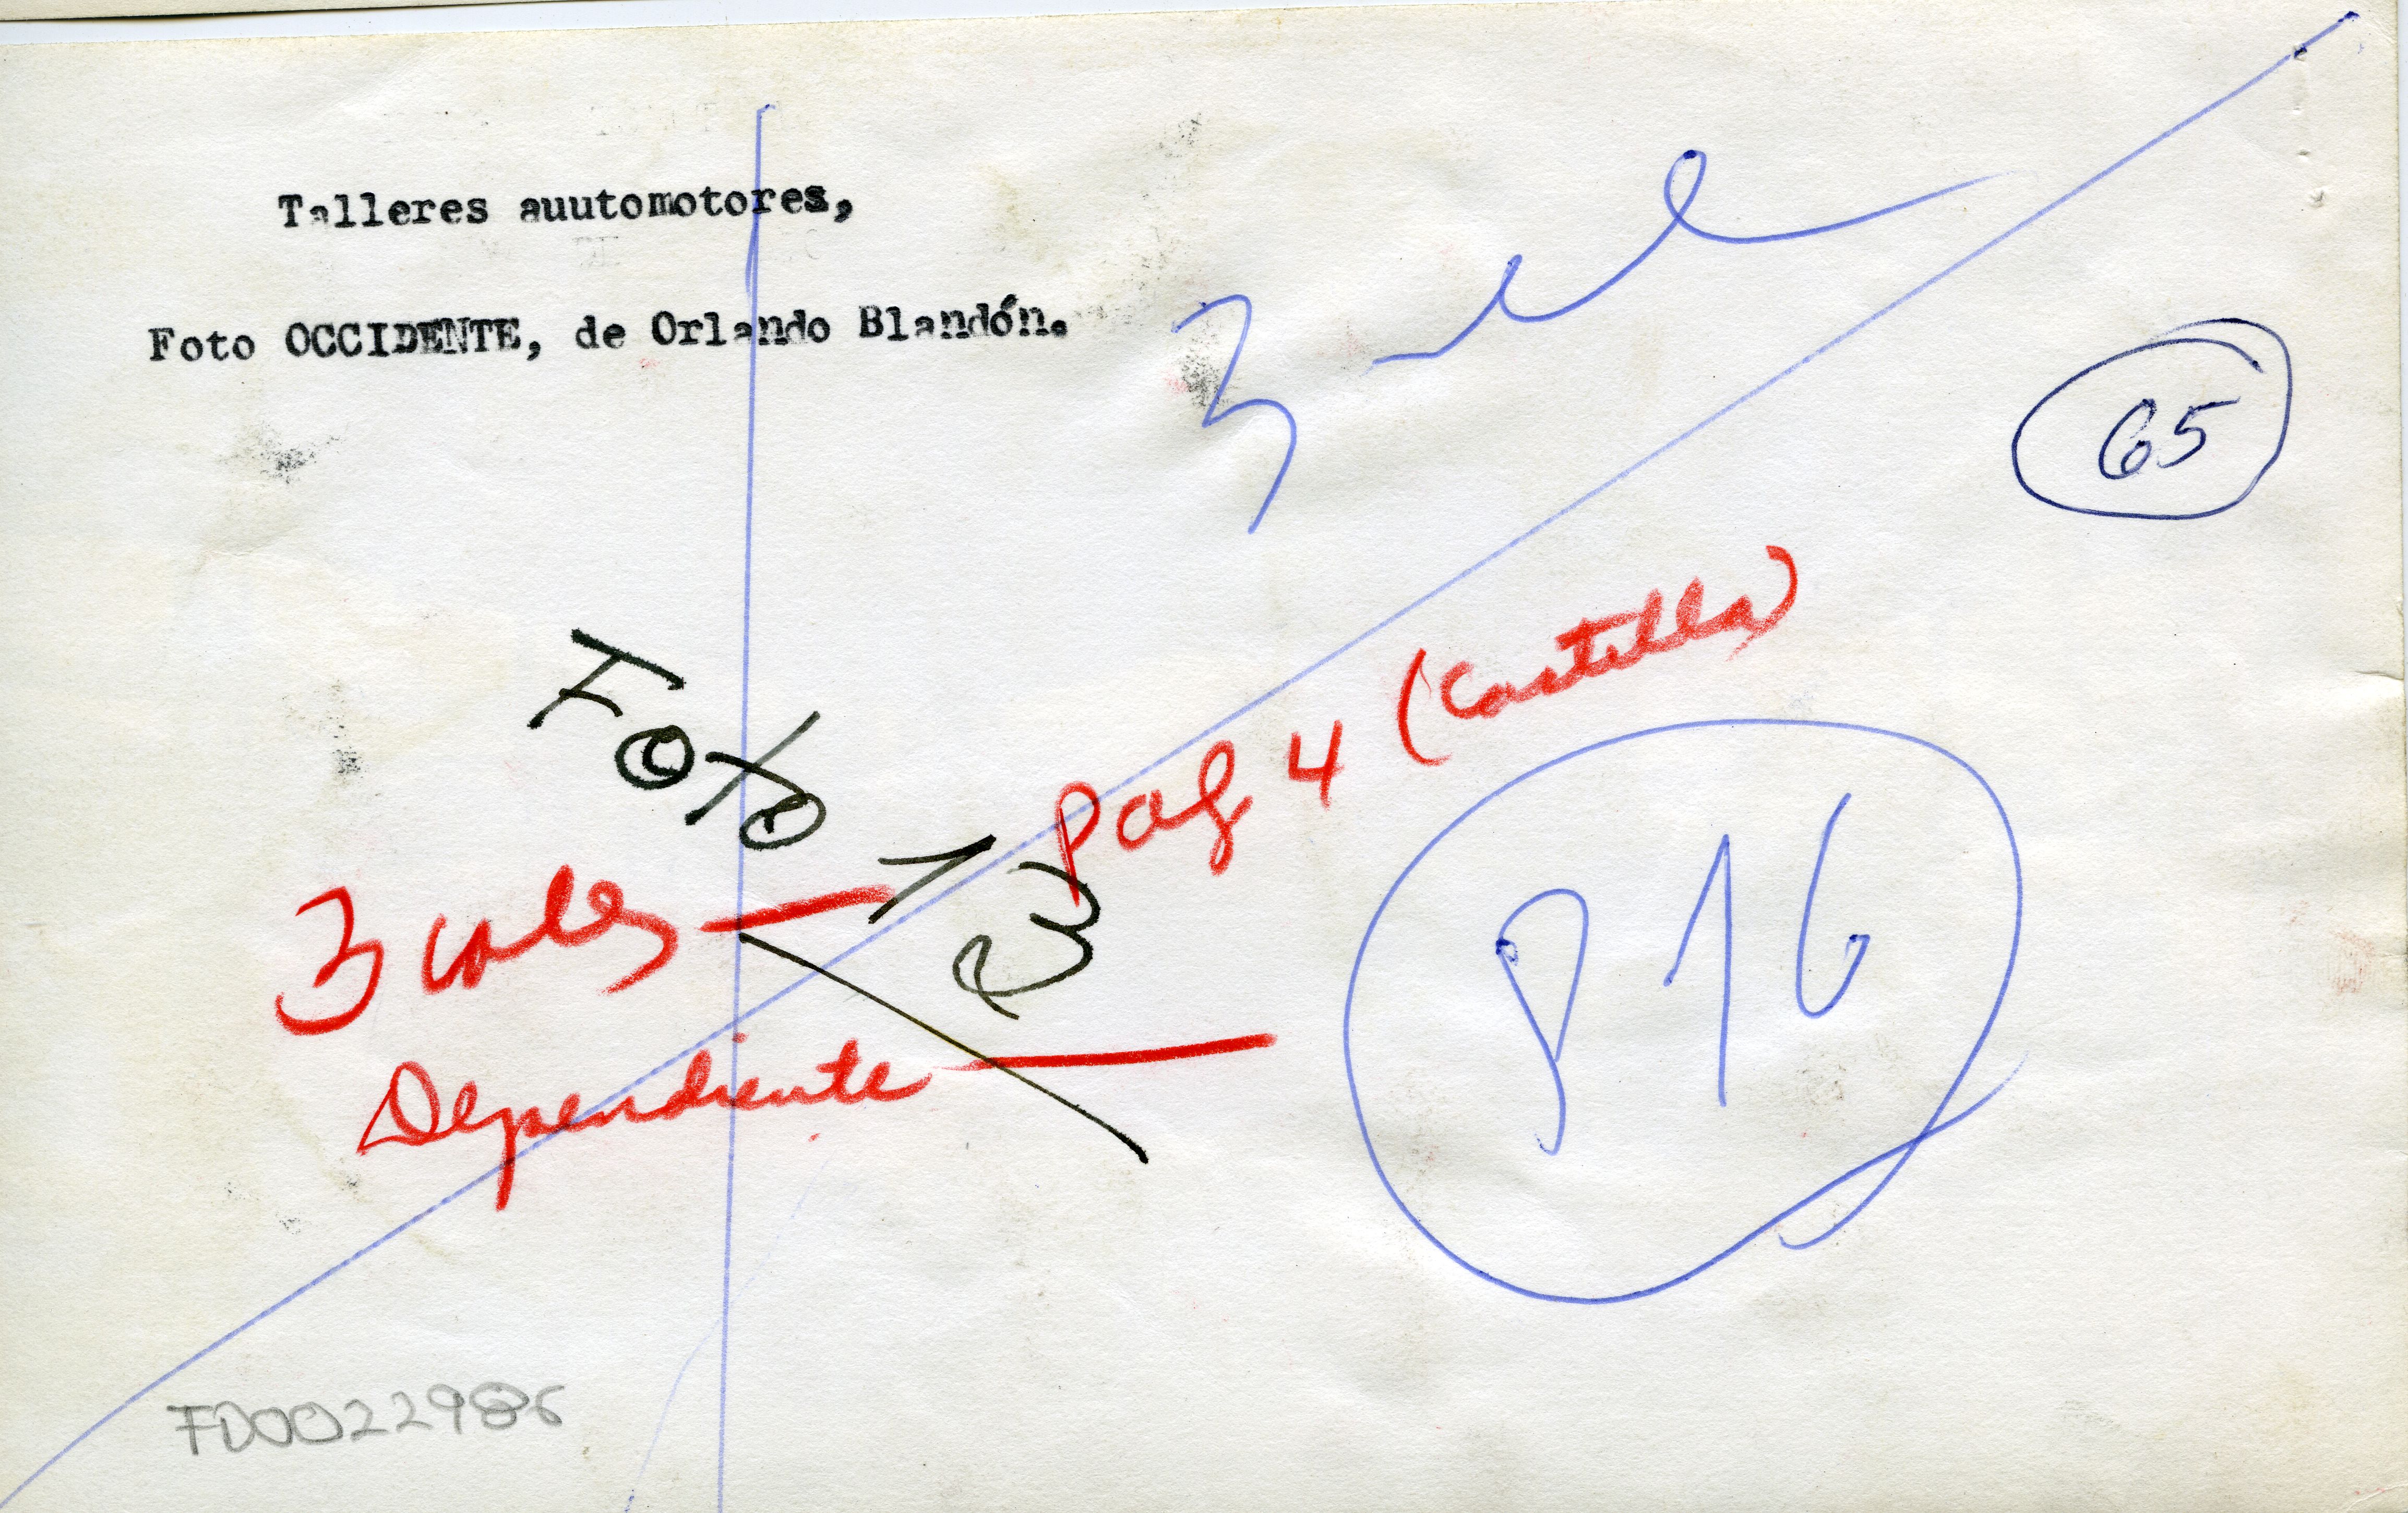 Talleres auutomotores,
Foto OCCIDENTE, de Orlando Blandón.
3 col
65
Pag 4 (Castilla)
Foto 1
3 coles
Dependiente
P 16
FD0022986